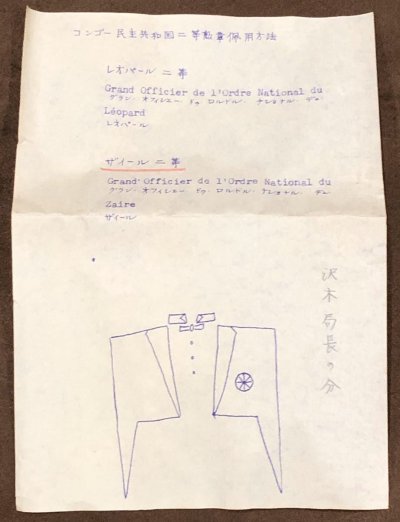 コンゴー民主共和国二等勲章佩用方法
レオパール二等
Grand Officier de l'Ordre National du
グラン・オフィシエー ドゥ ロルドル・ナショナル・デュ
Léopard
レオパール
ザイール二等
Grand Officier de l'Ordre National du
グラン・オフィシエー ドゥ ロルドル・ナショナル・デュ
Zaire
ザイール
沢木局長の分